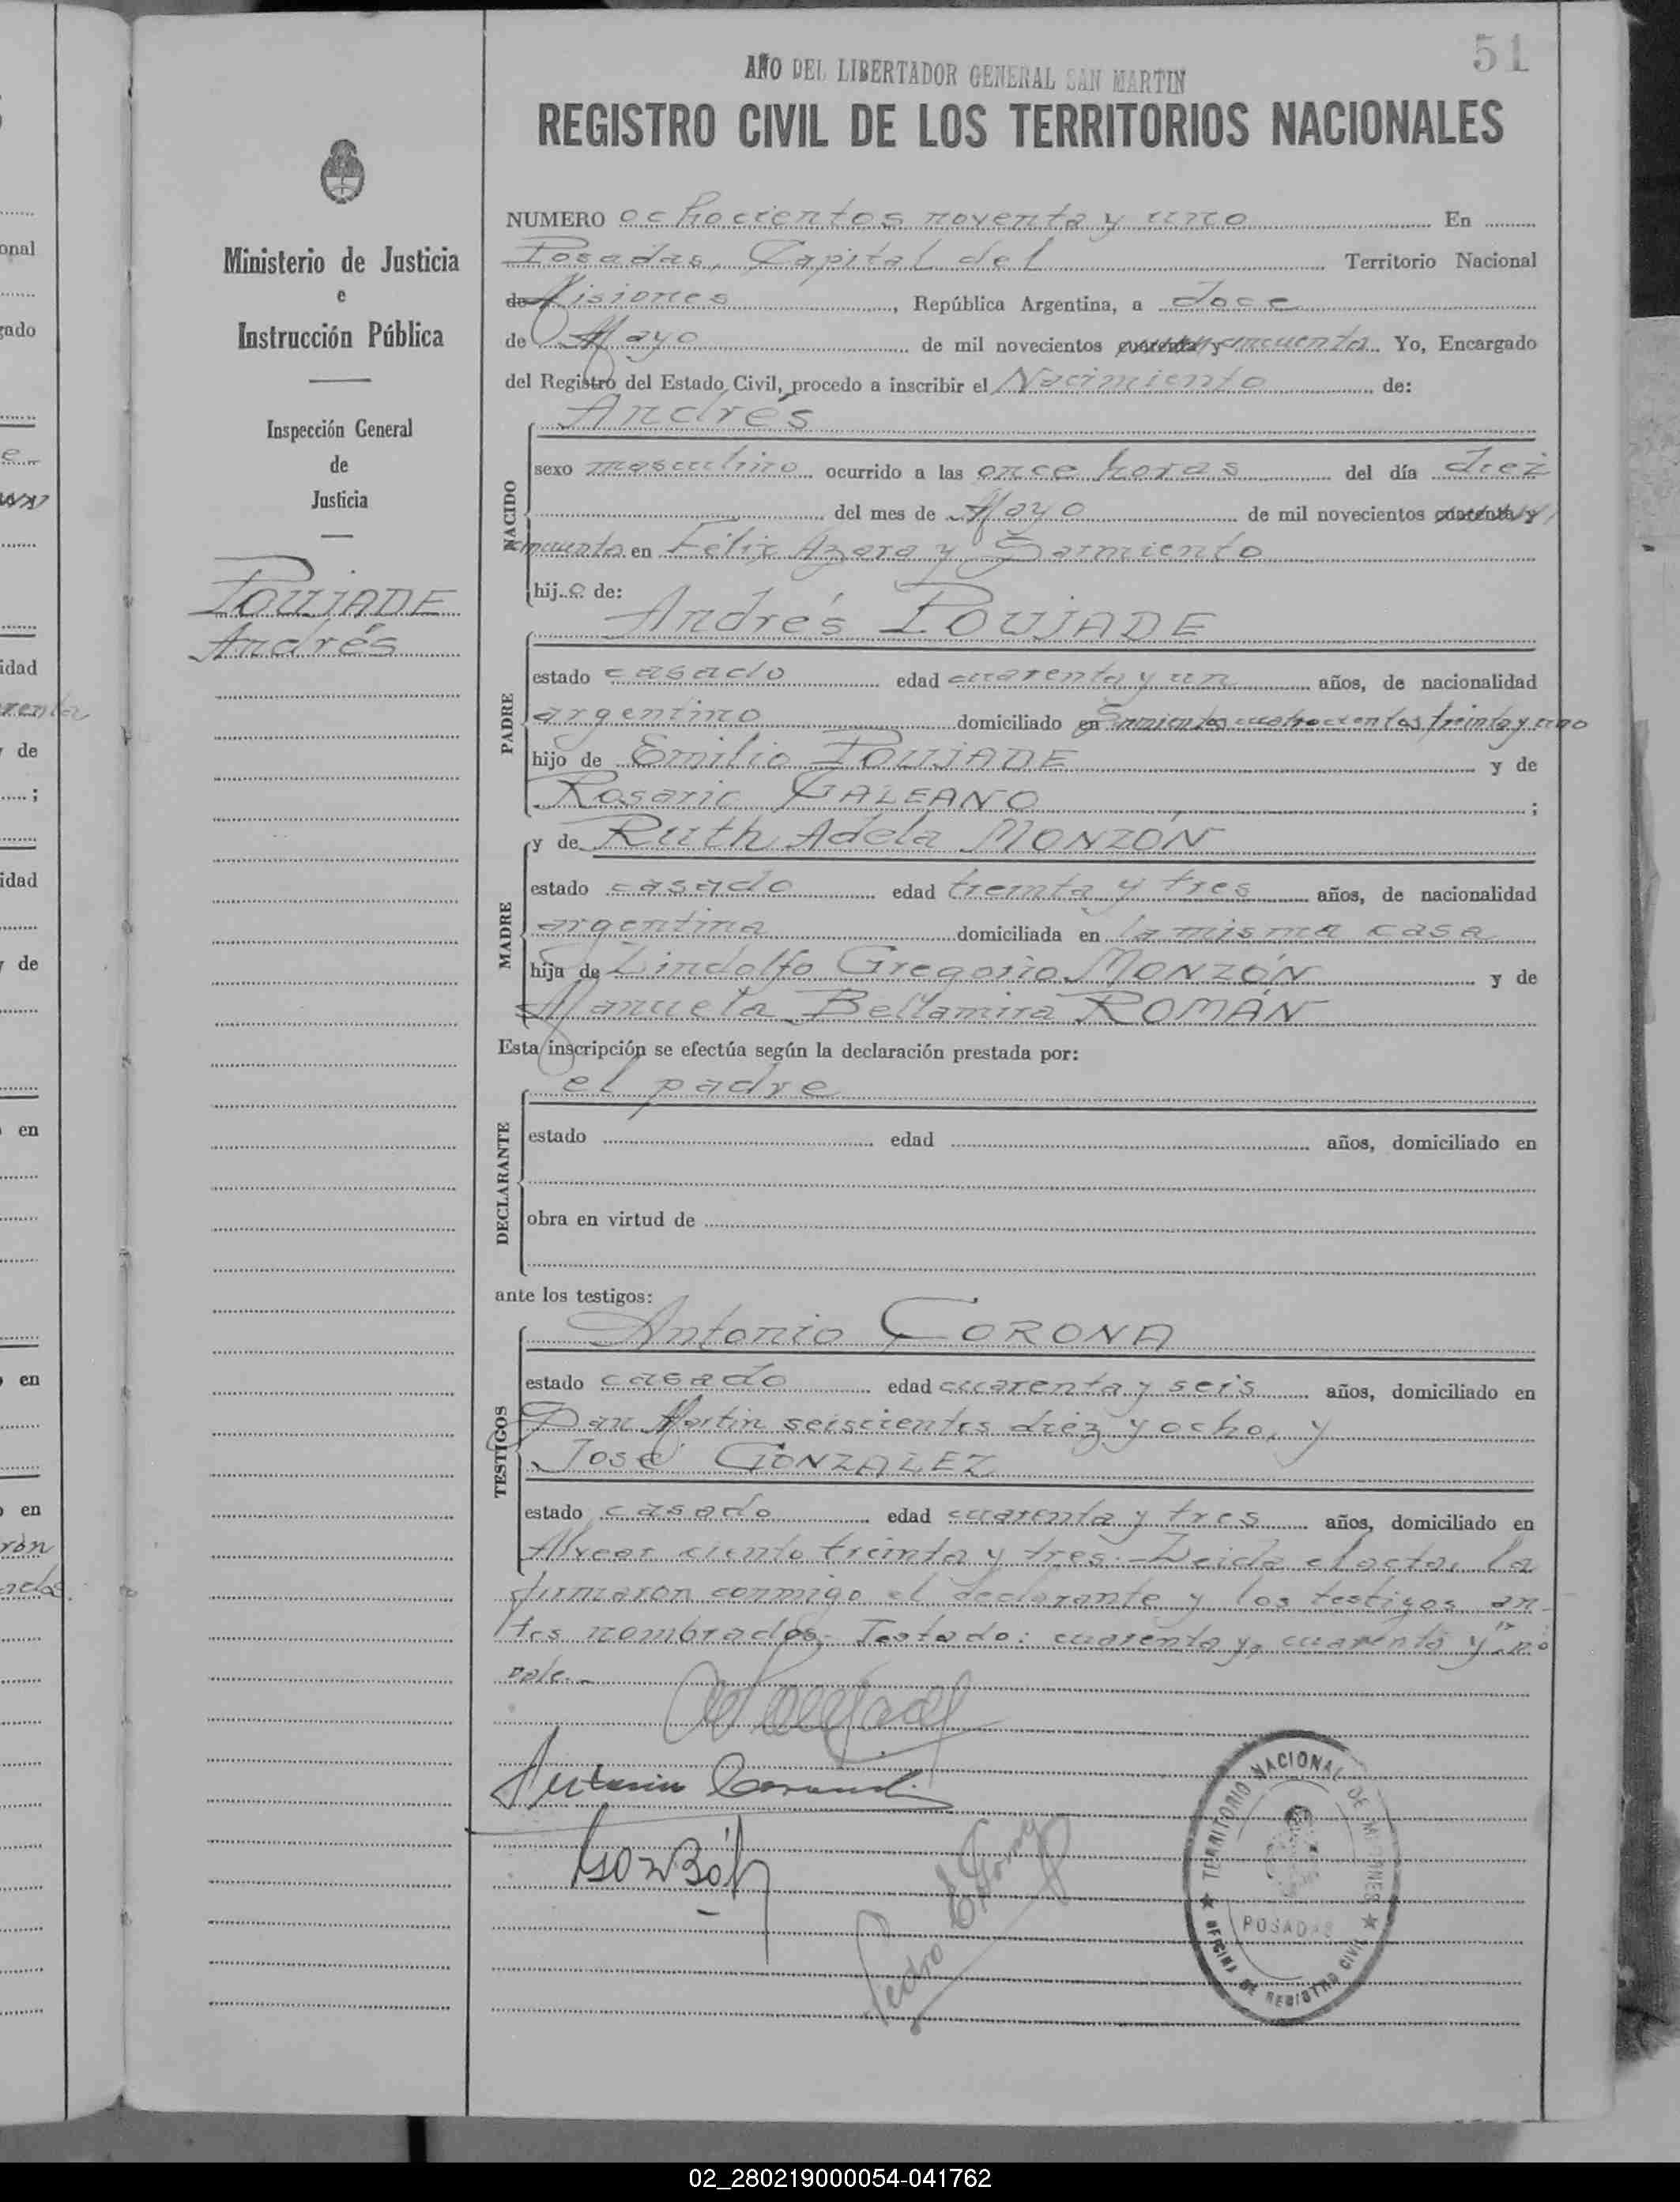 51
AÑO DEL LIBERTADOR GENERAL SAN MARTIN
REGISTRO CIVIL DE LOS TERRITORIOS NACIONALES
Ministerio de Justicia
e
Instrucción Pública
Inspección General
de
Justicia
POUJADE
Andrés
NUMERO ochocientos noventa y uno En
Posadas, Capital del Territorio Nacional
de Misiones, República Argentina, a doce
de Mayo de mil novecientos cuarenta y cincuenta Yo, Encargado
del Registro del Estado Civil, procedo a inscribir el Nacimiento de:
Andrés
NACIDO
sexo masculino ocurrido a las once horas del día diez
del mes de Mayo de mil novecientos cuarenta y
cincuenta en Félix Azara y Sarmiento
hijo de:
Andrés POUJADE
PADRE
estado casado edad cuarenta y un años, de nacionalidad
argentino domiciliado en Sarmiento cuatrocientos treinta y uno
hijo de Emilio POUJADE y de
Rosario GALEANO ;
MADRE
y de Ruth Adela MONZÓN
estado casado edad treinta y tres años, de nacionalidad
argentina domiciliada en la misma casa
hija de Lindolfo Gregorio MONZÓN y de
Manuela Bellamira ROMÁN
Esta inscripción se efectúa según la declaración prestada por:
el padre
DECLARANTE
estado edad años, domiciliado en
obra en virtud de
ante los testigos:
Antonio CORONA
TESTIGOS
estado casado edad cuarenta y seis años, domiciliado en
San Martin seiscientos diez y ocho, y
José GONZALEZ
estado casado edad cuarenta y tres años, domiciliado en
Alvear ciento treinta y tres.- Leida el acta, la
firmaron conmigo el declarante y los testigos an-
tes nombrados.- Testado: cuarenta y, cuarenta y: no
vale.-
Antonio Corona
Pedro
TERRITORIO NACIONAL DE MISIONES
POSADAS
OFICINA DE REGISTRO CIVIL
02_280219000054-041762